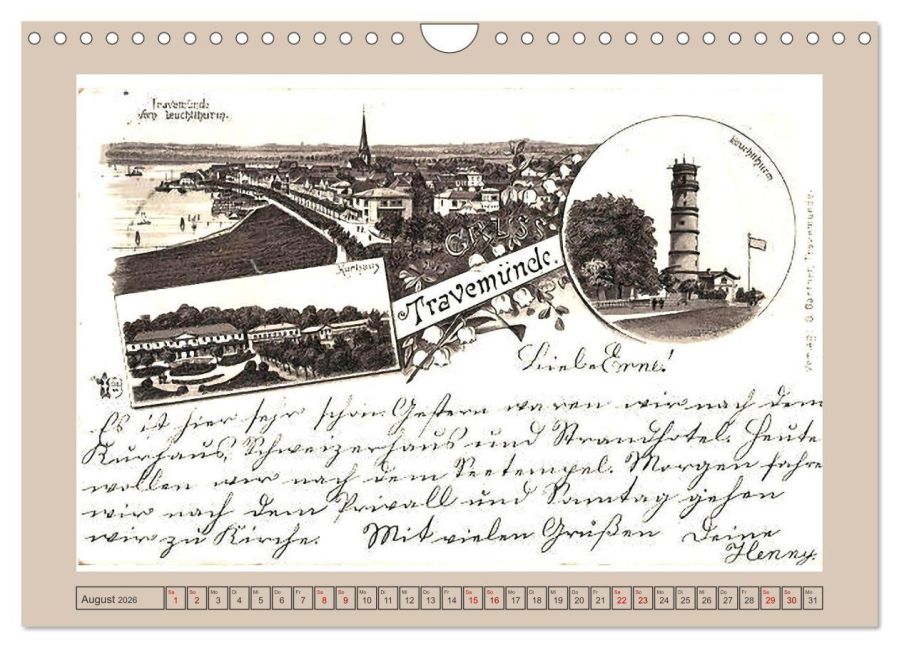 Travemünde
vom Leuchtthurm.
Leuchtthurm
GRUSS
aus
Travemünde.
Kurhaus
Verlag: G. Gärtner, Travemünde.
Liebe Erne!
Es ist hier sehr schön. Gestern waren wir nach dem
Kurhaus, Schweizerhaus und Strandhotel. Heute
wollen wir nach dem Seetempel. Morgen fahre
wir nach dem Privall und Sonntag gehen
wir zu Kirche. Mit vielen Grüßen Deine
Henny.
August 2026
Sa So Mo Di Mi Do Fr Sa So Mo Di Mi Do Fr Sa So Mo Di Mi Do Fr Sa So Mo Di Mi Do Fr Sa So Mo
1 2 3 4 5 6 7 8 9 10 11 12 13 14 15 16 17 18 19 20 21 22 23 24 25 26 27 28 29 30 31